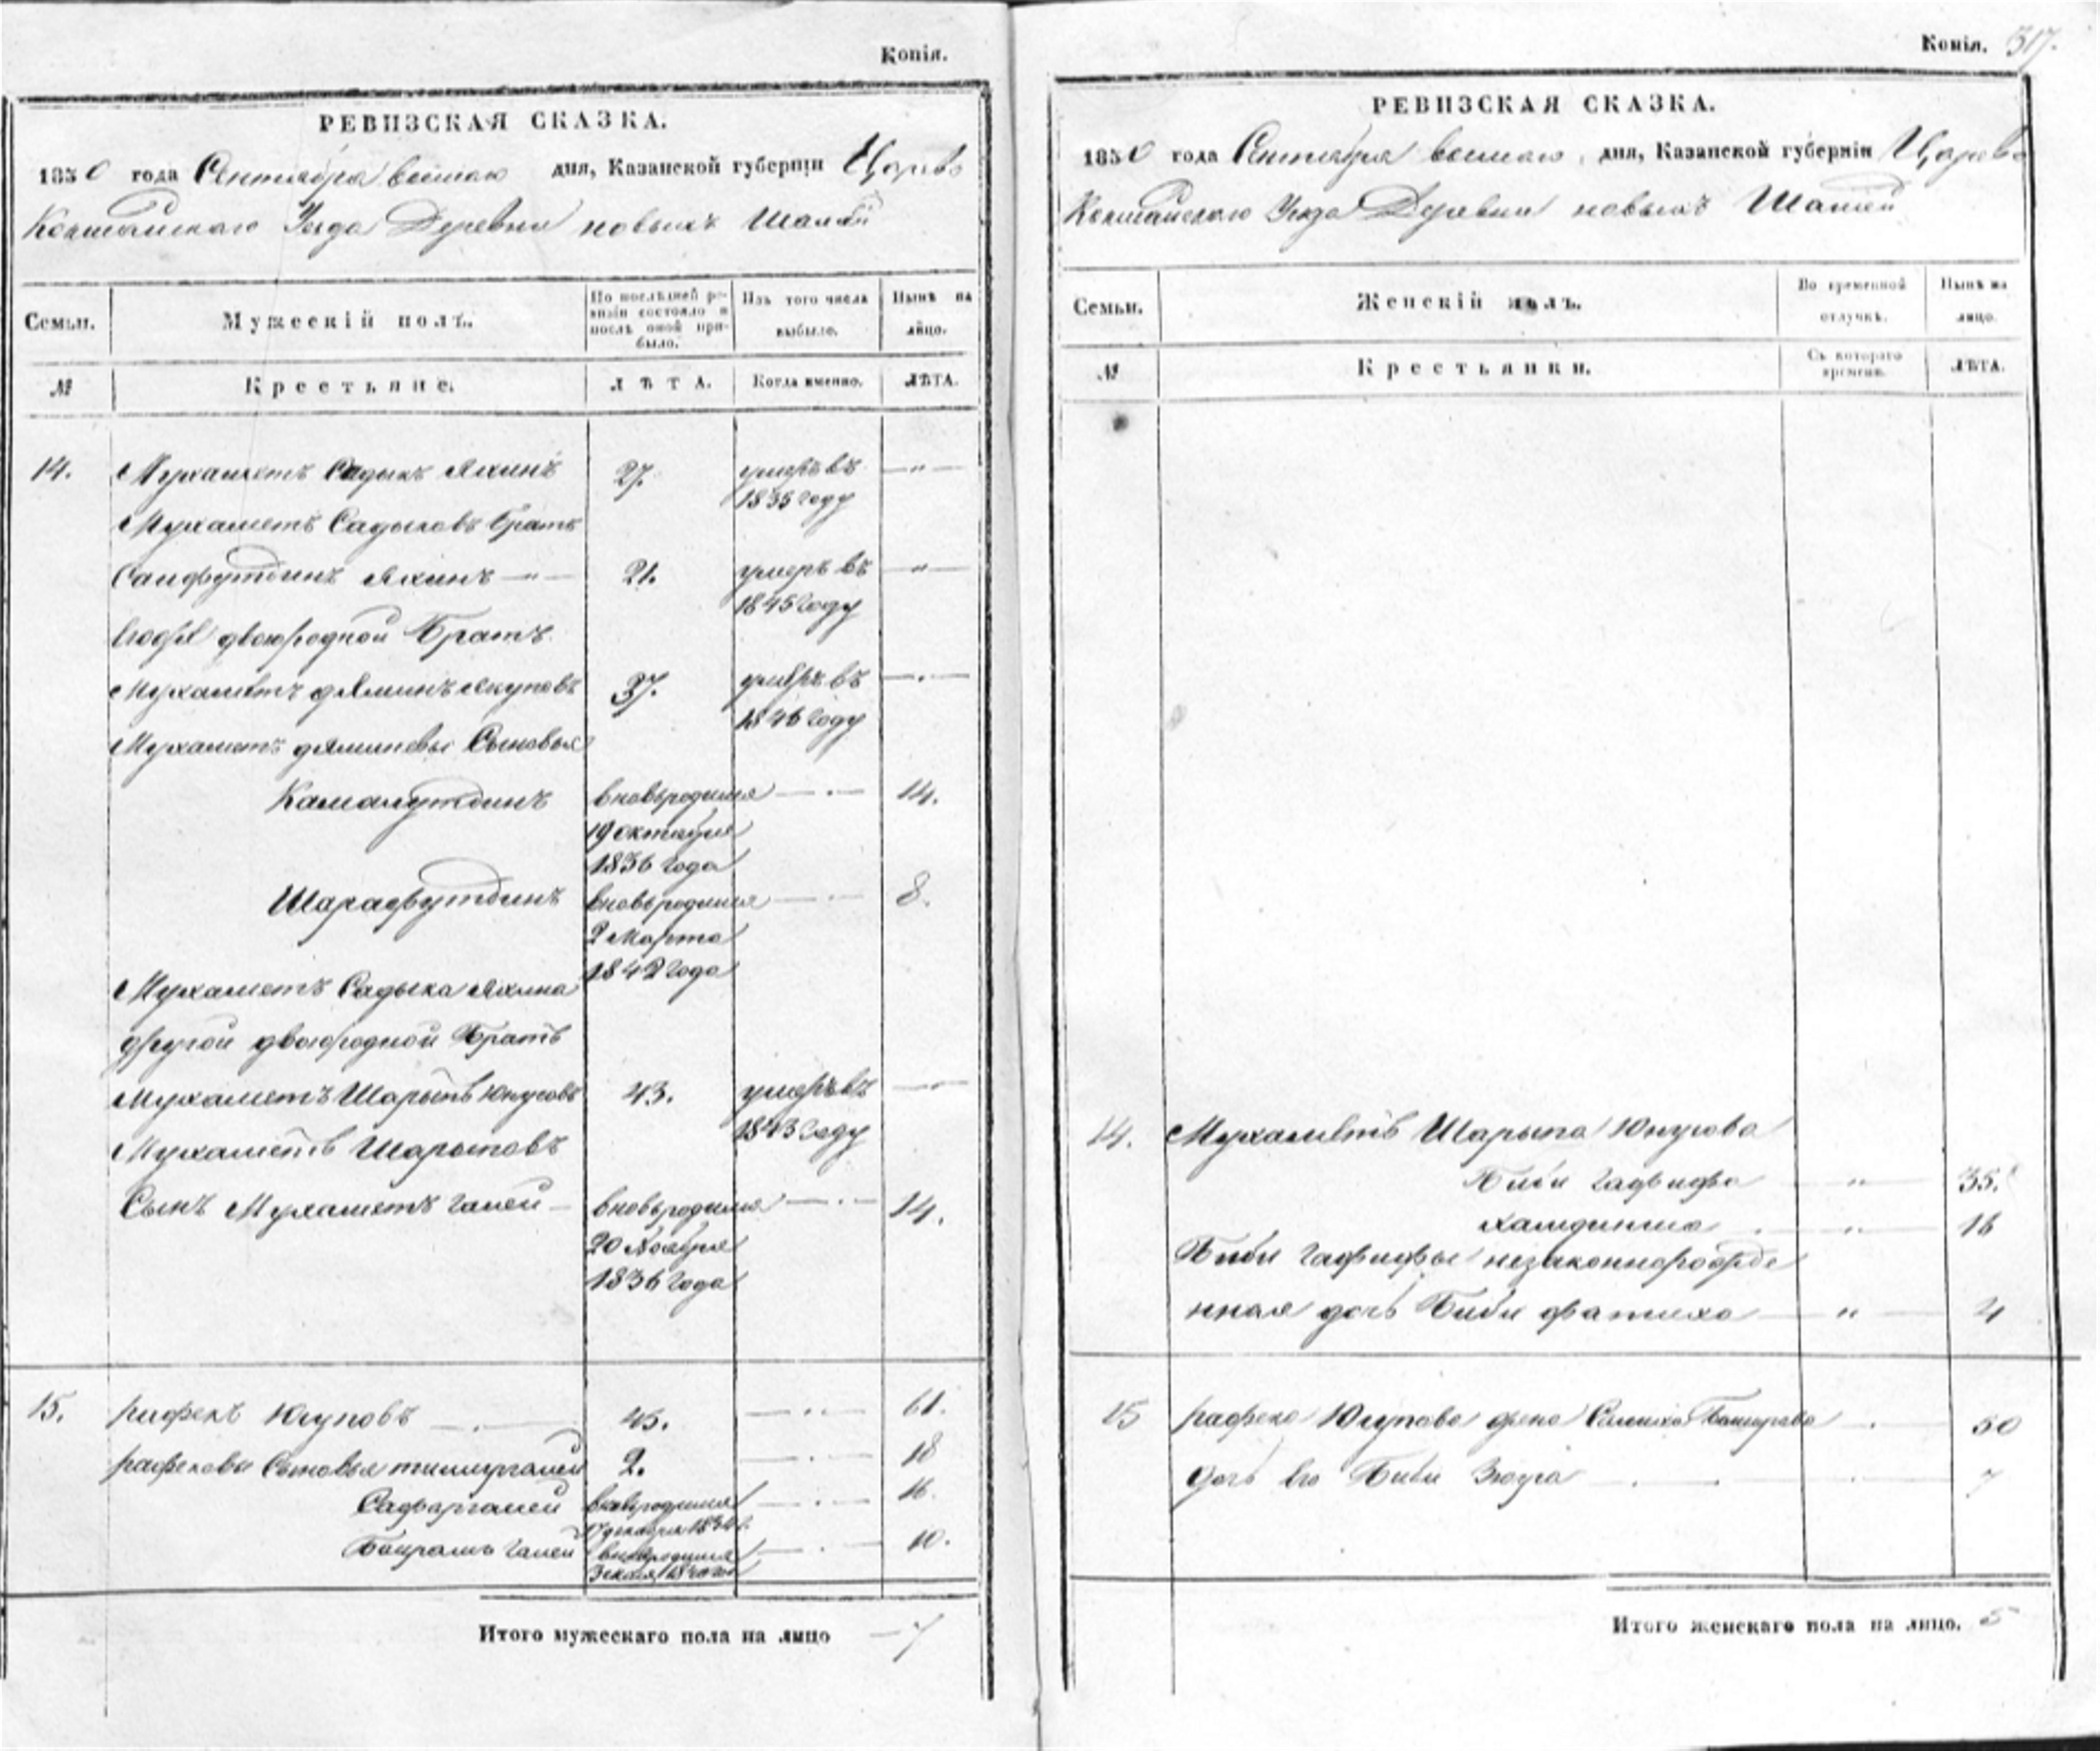 Копія.
РЕВИЗСКАЯ СКАЗКА.
1850 года Сентября дня, Казанской губерніи Царево
Кокшайскаго Уезда Деревни новыхъ
Семьи. Мужескій полъ. По послѣдней ре-визіи состояло и послѣ оной при-было. Изъ того числа выбыло. Нынѣ на лицо.
№ Крестьяне. ЛѢТА. Когда именно. ЛѢТА.
14. Мухаметъ Садыкъ Яхинъ 27. умеръ въ — " —
1835 году
Мухаметъ Садыковъ братъ
Сайфутдинъ Яхинъ — " — 21. умеръ въ — " —
1845 году
двоюродной Братъ
Мухаметъ Якуповъ 37. умеръ въ — " —
1846 году
Мухаметъ Сыновья
Камалутдинъ вновьродился — " — 14.
19 октября
1836 года
Шарафутдинъ вновьродился — " — 8.
2 Марта
1842 года
Мухаметъ Садыка Яхина
другой двоюродной Братъ
Мухаметъ Шарыпъ Юнусовъ 43. умеръ въ — " —
1843 году
Мухаметъ Шарыповъ
Сынъ Мухаметъ галей — вновьродился — " — 14.
20 Ноября
1836 года
15. рафекъ Юсуповъ — " — 45. — " — 61.
рафековы Сыновья 2. — " — 18
вновьродился — " — 16.
Баирамъ галей вновьродился — " — 10.
Итого мужескаго пола на лицо — 7
Копія. 317.
РЕВИЗСКАЯ СКАЗКА.
1850 года Сентября дня, Казанской губерніи Царево
Кокшайскаго Уезда Деревни новыхъ
Семьи. Женскій полъ. Во временной отлучкѣ. Нынѣ на лицо.
№ Крестьянки. Съ котораго времени. ЛѢТА.
14. Мухаметъ Шарыпа Юнусова
Биби гафифа — " — 35.
— " — 16
Биби гафифы незаконнорожде
нная дочь Биби фатиха — " — 4
15 рафека Юсупова жена — " — 50
дочь Его Биби — " — 7
Итого женскаго пола на лицо. 5